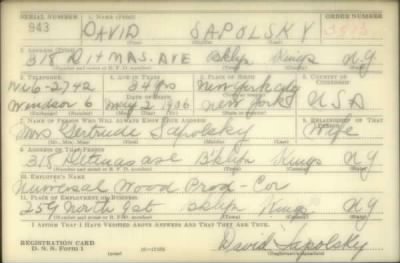 SERIAL NUMBER 1. NAME (Print) ORDER NUMBER
943 DAVID SAPOLSKY
2. ADDRESS (Print)
318 DITMAS. AVE Bklyn Kings N.Y
(Number and street or R. F. D. number) (Town) (County) (State)
3. TELEPHONE 4. AGE IN YEARS 5. PLACE OF BIRTH 6. COUNTRY OF CITIZENSHIP
Wi6-2742 34 yrs New York City
DATE OF BIRTH
Windsor 6 May 2 1906 New York USA
(Exchange) (Number) (Mo.) (Day) (Yr.) (Town or county) (State or country)
7. NAME OF PERSON WHO WILL ALWAYS KNOW YOUR ADDRESS 8. RELATIONSHIP OF THAT PERSON
Mrs Gertrude Sapolsky Wife
(Mr., Mrs., Miss) (First) (Middle) (Last)
9. ADDRESS OF THAT PERSON
318 Ditmas ave B'klyn Kings N.Y
(Number and street or R. F. D. number) (Town) (County) (State)
10. EMPLOYER'S NAME
Universal Wood Prod-Cor
11. PLACE OF EMPLOYMENT OR BUSINESS
259 North 9st Bklyn Kings N.Y
(Number and street or R. F. D. number) (Town) (County) (State)
I AFFIRM THAT I HAVE VERIFIED ABOVE ANSWERS AND THAT THEY ARE TRUE.
REGISTRATION CARD
D. S. S. Form 1
David Sapolsky
(Registrant's signature)